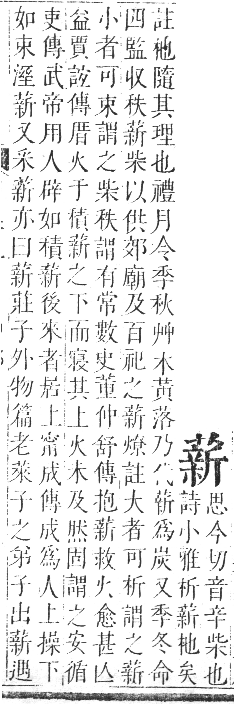 薪
思今切音辛柴也
詩小雅析薪杝矣
註杝隨其理也禮月令季秋艸木黃落乃伐薪爲炭又季冬命
四監収秩薪柴以供郊廟及百祀之薪燎註大者可析謂之薪
小者可束謂之柴秩謂有常數史董仲舒傳抱薪救火愈甚亾
益賈誼傳厝火于積薪之下而寢其上火未及然固謂之安循
吏傳武帝用人辟如積薪後來者居上甯成傳成爲人上操下
如束溼薪又采薪亦曰薪莊子外物篇老萊子之弟子出薪遇